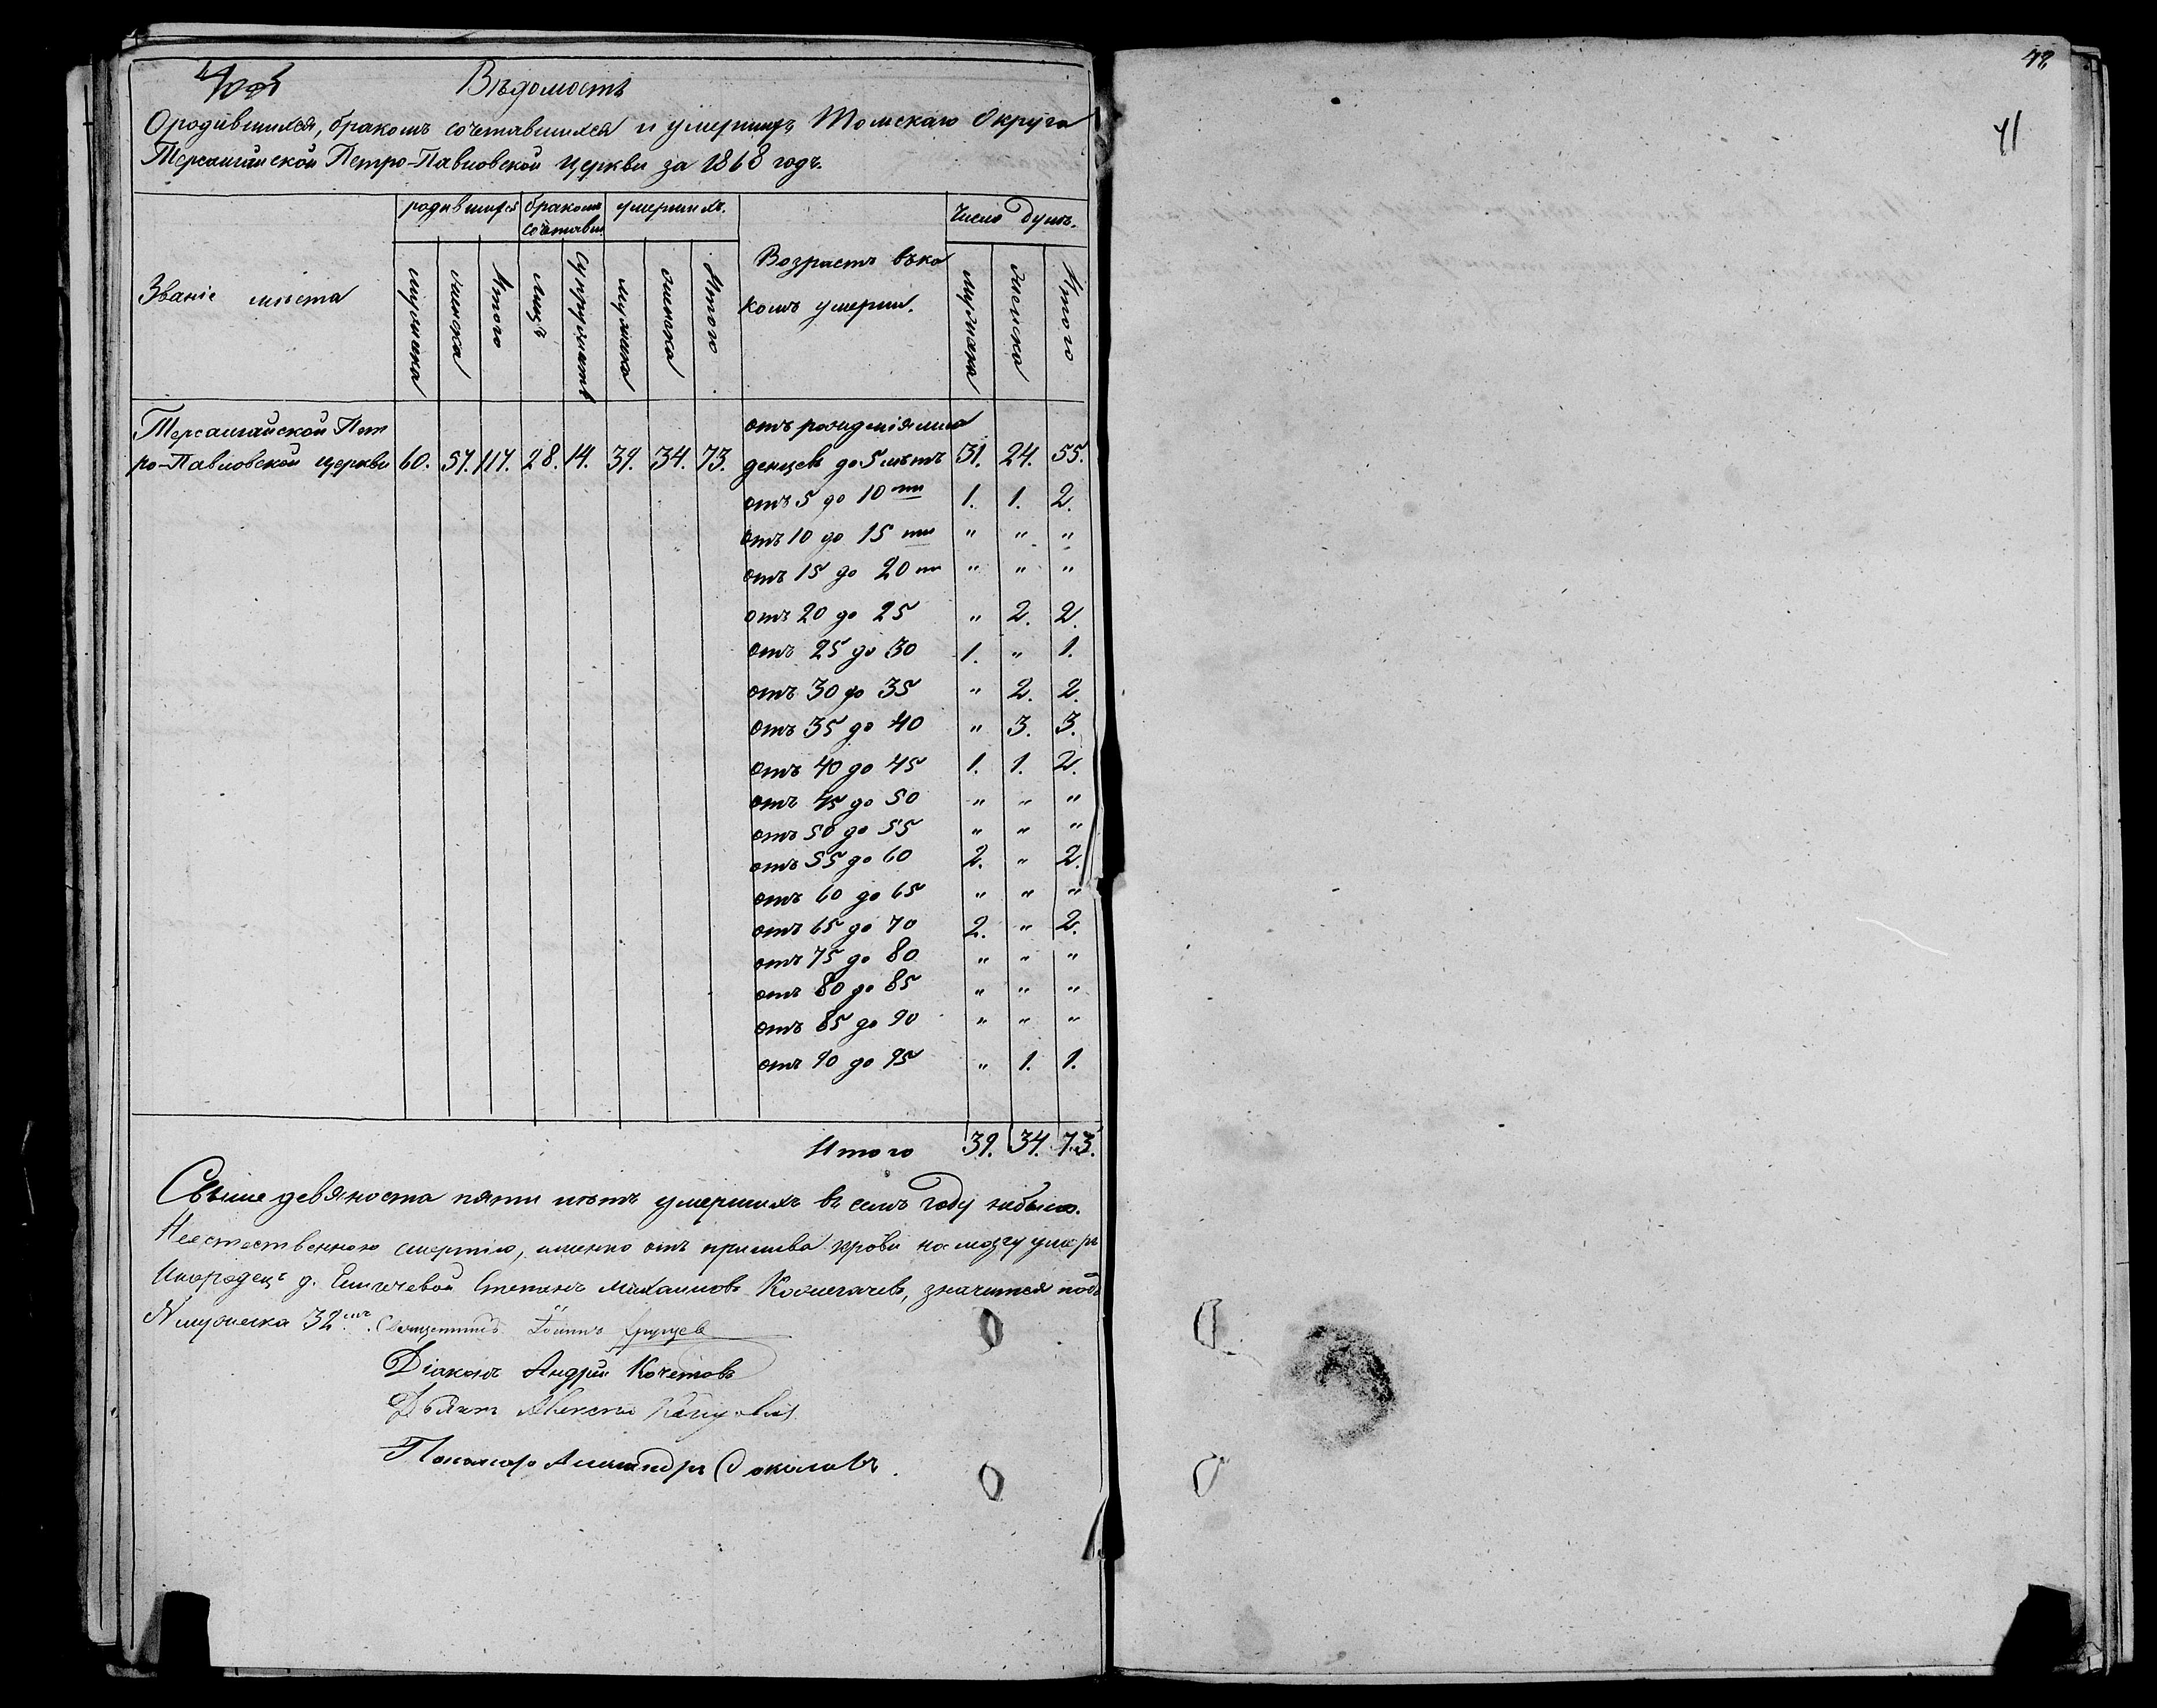 Вѣдомость
О родившихся, бракомъ сочетавшихся и умершихъ Томскаго Округа
Терсалгайской Петро-Павловской церкви за 1868 годъ.
Званіе мѣста
родившихся
бракомъ сочетавш
умершихъ.
Возрастъ въ ко
комъ умерш.
Число душъ.
мужеска
женска
Итого
Лицъ
Супружествъ
мужеска
женска
Итого
мужеска
женска
Итого
Терсалгайской Пет
ро-Павловской церкви 60. 57. 117. 28. 14. 39. 34. 73.
отъ рожденія мла
денцевъ до 5 лѣтъ 31. 24. 55.
отъ 5 до 10 ти 1. 1. 2.
отъ 10 до 15 ти " " "
отъ 15 до 20 ти " " "
отъ 20 до 25 " 2. 2.
отъ 25 до 30 1. " 1.
отъ 30 до 35 " 2. 2.
отъ 35 до 40 " 3. 3.
отъ 40 до 45 1. 1. 2.
отъ 45 до 50 " " "
отъ 50 до 55 " " "
отъ 55 до 60 2. " 2.
отъ 60 до 65 " " "
отъ 65 до 70 2. " 2.
отъ 75 до 80 " " "
отъ 80 до 85 " " "
отъ 85 до 90 " " "
отъ 90 до 95 " 1. 1.
Итого 39. 34. 73.
Свыше девяноста пяти лѣтъ умершихъ въ семъ году небыло.
Неестественною смертію, именно отъ прилива крови къ мозгу умеръ
Инородецъ д. Степанъ Михаиловъ значится подъ
№ мужеска 32
Священникъ Іоаннъ
Діаконъ Андрей Кочетовъ
Дьячекъ Алексѣй
Пономарь Александръ Соколовъ.
42
41